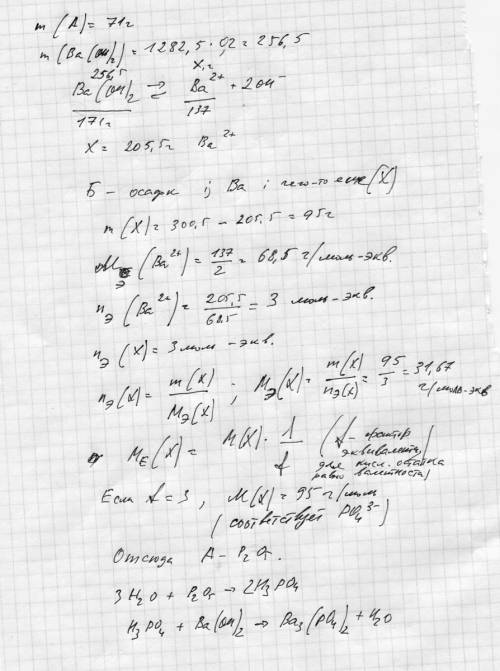 m(A) = 71г
m(Ba(OH)₂) = 1282,5 · 0,2 = 256,5
256,5 X г
Ba(OH)₂ ⇄ Ba²⁺ + 2OH⁻
171г 137
X = 205,5г Ba²⁺
Б – осадок Ba чего-то еще (X)
m(X) = 300,5 – 205,5 = 95г
Mэ(Ba²⁺) = 137/2 = 68,5 г/моль-экв.
nэ(Ba²⁺) = 205,5/68.5 = 3 моль-экв.
nэ(X) = 3 моль-экв.
nэ(X) = m(X)/Mэ(X) ; Mэ(X) = m(X)/nэ(X) = 95/3 = 31,67 г/моль-экв
M_E(X) = M(X) · 1/f (f – фактор эквивалентн. для кисл. остатка равно валентности)
Если f = 3, M(X) = 95 г/моль
(соответствует PO₄³⁻)
Отсюда A – P₂O₅.
3H₂O + P₂O₅ → 2H₃PO₄
H₃PO₄ + Ba(OH)₂ → Ba₃(PO₄)₂ + H₂O